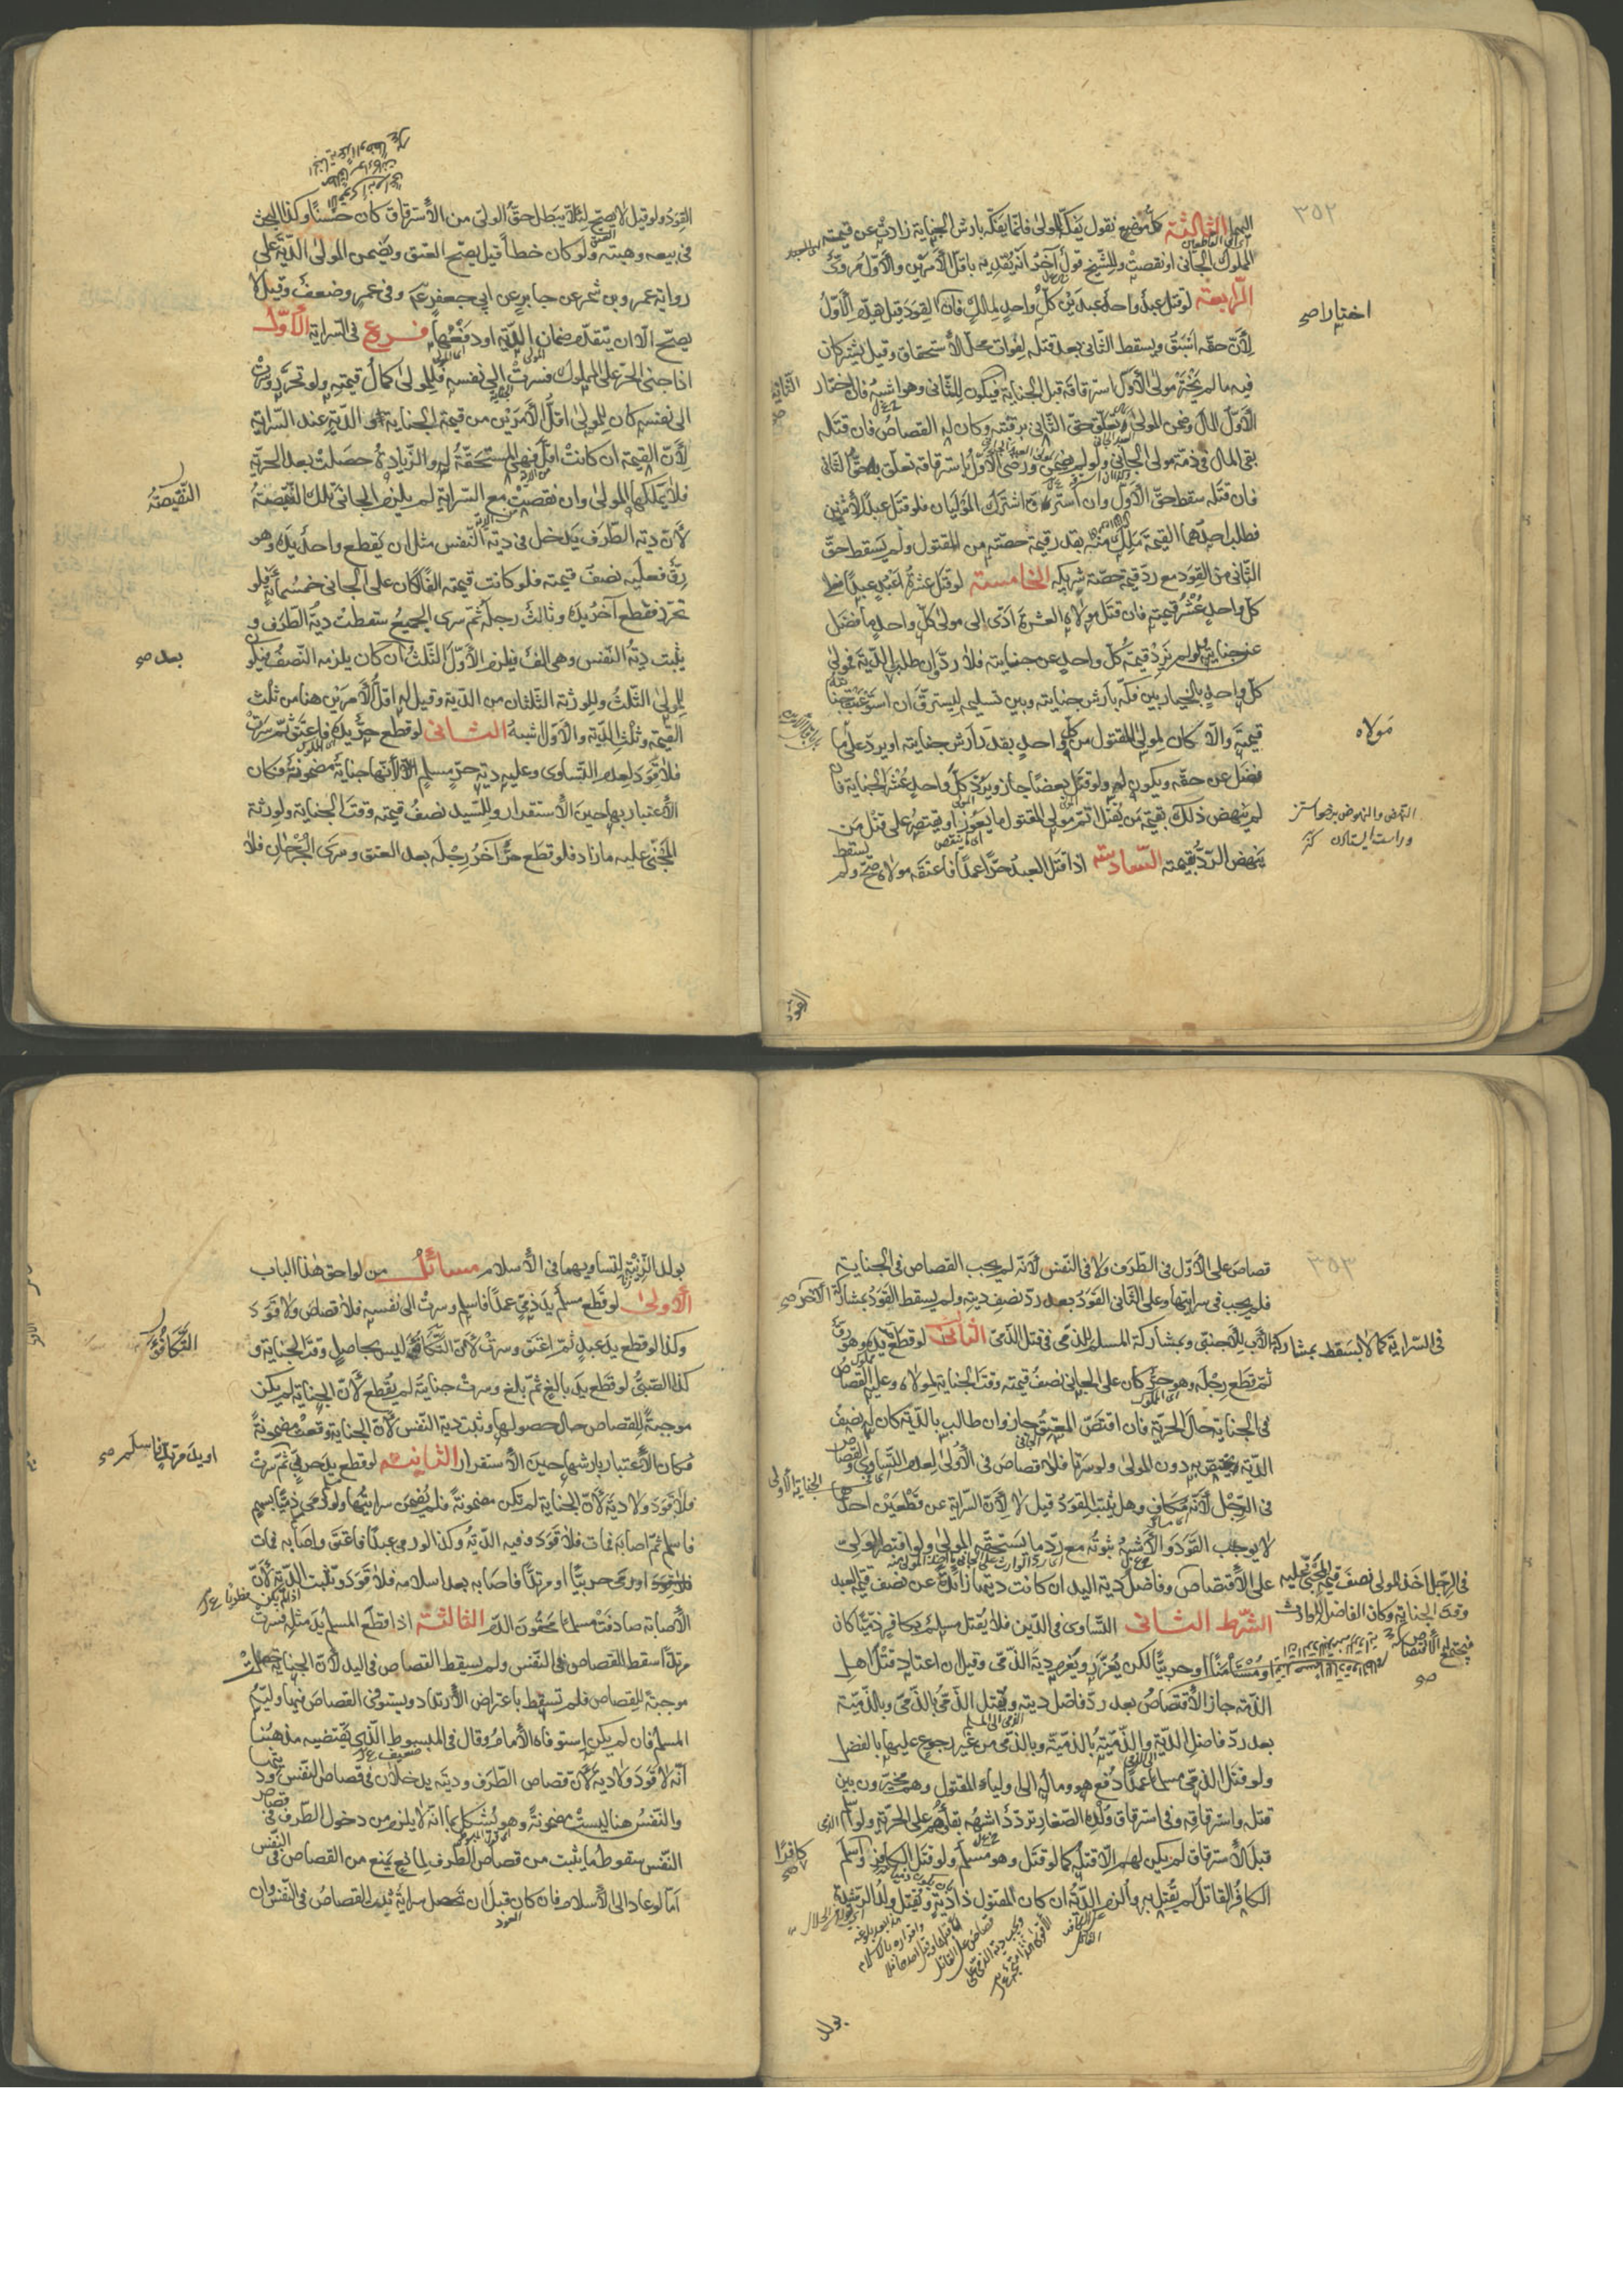 ٣٥٢
اليهما الثالثة كل موضع نقول يفكه المولى فانما يفكه بارش الجناية زادت عن قيمة
المملوك الجانى او نقصت وللشيخ قول آخر انه يفديه باقل الأمرين والأول مروى
الرابعة لو قتل عبد واحد عبدين كل واحد لمالك فان القود قيل هو للأول
لأن حقه اسبق ويسقط الثانى بعد قتله لفوات محل الأستحقاق وقيل يشتركان
فيه ما لم يختر مولى الأول استرقاقه قبل الجناية فيكون للثانى وهو اشبه فان اختار
الأول المال وضمن المولى تعلق حق الثانى برقبته وكان له القصاص فان قتله
بقى المال فى ذمة مولى الجانى ولو لم يضمن ورضى الأول باسترقاقه تعلق به حق الثانى
فان قتله سقط حق الأول وان استرق اشترك الموليان فلو قتل عبدا لأثنين
فطلب احدهما القيمة ملك منه بقدر قيمة حصته من المقتول ولم يسقط حق
الثانى من القود مع رد قيمة حصة شريكه الخامسة لو قتل عشرة اعبد عبدا فعلى
كل واحد عشر قيمته فان قتل مولاه العشرة ادى الى مولى كل واحد ما فضل
عن جنايته ولو لم تزد قيمة كل واحد عن جنايته فلا رد وان طلب الدية فمولى
كل واحد بالخيار بين فكه بارش جنايته وبين تسليمه ليسترق ان استوعبت جنايته
قيمته والا كان لمولى المقتول من كل واحد بقدر ارش جنايته او يرد على مولاه ما
فضل عن حقه ويكون له ولو قتل بعضا جاز ويرد كل واحد عشر الجناية فان
لم ينهض ذلك بقيمة من يقتل اتم مولى المقتول ما يعوز او يقتصر على قتل من
ينهض الرد بقيمته السادسة اذا قتل العبد حرا عمدا فاعتقه مولاه صح ولم يسقط
اختيارا صح
مولاه
القود
القود ولو قيل لا يصح لئلا يبطل حق الولى من الأسترقاق كان حسنا وكذا البحث
فى بيعه وهبته ولو كان خطأ قيل يصح العتق ويضمن المولى الدية على
رواية عمرو بن شمر عن جابر عن ابى جعفر ع وفى عمرو ضعف وقيل لا
يصح الا ان يتقدم ضمان الدية او دفعها فروع فى السراية الأول
اذا جنى الحر على المملوك فسرت الى نفسه فللمولى كمال قيمته ولو تحرر وسرت
الى نفسه كان للمولى اقل الأمرين من قيمة الجناية او الدية عند السراية
لأن القيمة ان كانت اقل فهى المستحقة له والزيادة حصلت بعد الحرية
فلا يملكها المولى وان نقصت مع السراية لم يلزم الجانى تلك النقيصة
لأن دية الطرف يدخل فى دية النفس مثل ان يقطع واحد يده وهو
رق فعليه نصف قيمته فلو كانت قيمته الفا كان على الجانى خمسمائة فلو
تحرر فقطع آخر يده وثالث رجله ثم سرى الجميع سقطت دية الطرف و
يثبت دية النفس وهى الف فيلزم الأول الثلث ان كان يلزمه النصف فيكون
للمولى الثلث وللورثة الثلثان من الدية وقيل له اقل الأمرين هنا من ثلث
القيمة وثلث الدية والأول اشبه الثانى لو قطع حر يده فاعتق ثم سرت
فلا قود لعدم التساوى وعليه دية حر مسلم لأنها جناية مضمونة فكان
الأعتبار بها حين الأستقرار وللسيد نصف قيمته وقت الجناية ولورثة
المجنى عليه ما زاد فلو قطع حر آخر رجله بعد العتق وسرى الجرحان فلا
النقيصة
بعد صح
٣٥٣
قصاص على الأول فى الطرف ولا فى النفس لأنه لم يجب القصاص فى الجناية
فلم يجب فى سرايتها وعلى الثانى القود بعد رد نصف ديته ولم يسقط القود بمشاركة الآخر صح
فى السراية كما لا يسقط بمشاركة الأب للأجنبى وبمشاركة المسلم للذمى فى قتل الذمى الثالث لو قطع يده وهو رق
ثم قطع رجله وهو حر كان على الجانى نصف قيمته وقت الجناية لمولاه وعليه القصاص
فى الجناية حال الحرية فان اقتص المعتق جاز وان طالب بالدية كان له نصف
الدية يختص به دون المولى ولو سرتا فلا قصاص فى الأولى لعدم التساوى والقصاص
فى الرجل لأنه مكاف وهل يثبت القود قيل لا لأن السراية عن قطعين احدهما
لا يوجب القود والأشبه ثبوته مع رد ما يستحقه المولى ولو اقتصر الولى
على الأقتصاص وفاضل دية اليد ان كانت ديتها زائدة عن نصف قيمة العبد
الشرط الثانى التساوى فى الدين فلا يقتل مسلم بكافر ذميا كان
او مستأمنا او حربيا لكن يعزر ويغرم دية الذمى وقيل ان اعتاد قتل اهل
الذمة جاز الأقتصاص بعد رد فاضل ديته ويقتل الذمى بالذمى وبالذمية
بعد رد فاضل الدية والذمية بالذمية وبالذمى من غير رجوع عليها بالفضل
ولو قتل الذمى مسلما عمدا دفع هو وماله الى اولياء المقتول وهم مخيرون بين
قتله واسترقاقه وفى استرقاق ولده الصغار تردد اشبهه بقاءهم على الحرية ولو اسلم
قبل الأسترقاق لم يكن لهم الا قتله كما لو قتل وهو مسلم ولو قتل الكافر كافرا واسلم
الكافر القاتل لم يقتل به والزم الدية ان كان المقتول ذا دية ويقتل ولد الرشدة
فى الرجل اخذ المولى نصف قيمة المجنى عليه
وقت الجناية وكان الفاضل للوارث
فيجتمع له الأقتصاص صح
كافرا صح
بولد
بولد الزنية لتساويهما فى الأسلام مسائل من لواحق هذا الباب
الأولى لو قطع مسلم يد ذمى عمدا فاسلم وسرت الى نفسه فلا قصاص ولا قود
وكذا لو قطع يد عبد ثم اعتق وسرت لأن التكافؤ ليس بحاصل وقت الجناية و
كذا الصبى لو قطع يد بالغ ثم بلغ وسرت جنايته لم يقطع لأن الجناية لم يكن
موجبة للقصاص حال حصولها وثبت دية النفس لأن الجناية وقعت مضمونة
فكان الأعتبار بارشها حين الأستقرار الثانية لو قطع يد حربى ثم سرت
فلا قود ولا دية لأن الجناية لم تكن مضمونة فلم يضمن سرايتها ولو رمى ذميا بسهم
فاسلم ثم اصابه فمات فلا قود وفيه الدية وكذا لو رمى عبدا فاعتق واصابه فمات
او رمى حربيا او مرتدا فاصابه بعد اسلامه فلا قود وتثبت الدية لأن
الأصابة صادفت مسلما محقون الدم الثالثة اذا قطع المسلم يد مثله فسرت
مرتدا سقط القصاص فى النفس ولم يسقط القصاص فى اليد لأن الجناية حصلت
موجبة للقصاص فلم تسقط باعتراض الأرتداد ويستوفى القصاص فيها وليه
المسلم فان لم يكن استوفاه الأمام وقال فى المبسوط الذى يقتضيه مذهبنا
انه لا قود ولا دية لأن قصاص الطرف وديته يدخلان فى قصاص النفس وديتها
والنفس هنا ليست مضمونة وهو يشكل بما انه لا يلزم من دخول الطرف فى قصاص
النفس سقوط ما يثبت من قصاص الطرف لمانع يمنع من القصاص فى النفس
اما لو عاد الى الأسلام فان كان قبل ان تحصل سراية ثبت القصاص فى النفس وان
التكافؤ
او يد مرتد فاسلم صح